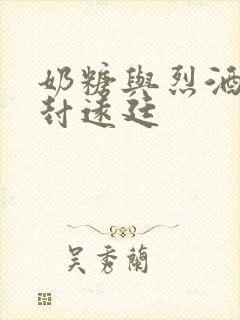 奶糖與烈酒
封遠廷
吳秀蘭